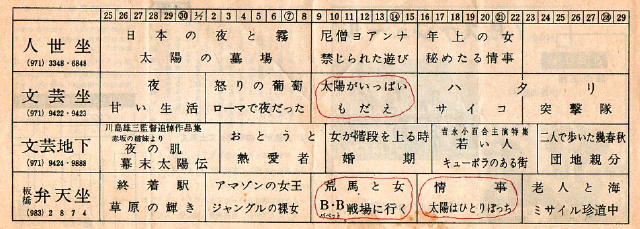 25 26 27 28 29 ㉚ 1/1 2 3 4 5 6 ⑦ 8 9 10 11 12 13 ⑭ 15 16 17 18 19 20 ㉑ 22 23 24 25 26 27 ㉘ 29
人世坐
(971) 3348・6848
日本の夜と霧
太陽の墓場
尼僧ヨアンナ
禁じられた遊び
年上の女
秘めたる情事
文芸坐
(971) 9422・9423
夜
甘い生活
怒りの葡萄
ローマで夜だった
太陽がいっぱい
もだえ
ハタリ
サイコ
突撃隊
文芸地下
(971) 9424・9888
川島雄三監督追悼作品集
赤坂の姉妹より
夜の肌
幕末太陽伝
おとうと
熱愛者
女が階段を上る時
婚期
吉永小百合主演特集
若い人
キューポラのある街
二人で歩いた幾春秋
団地親分
板橋 弁天坐
(983) 2874
終着駅
草原の輝き
アマゾンの女王
ジャングルの裸女
荒馬と女
B・B戦場に行く
ババット
情事
太陽はひとりぼっち
老人と海
ミサイル珍道中